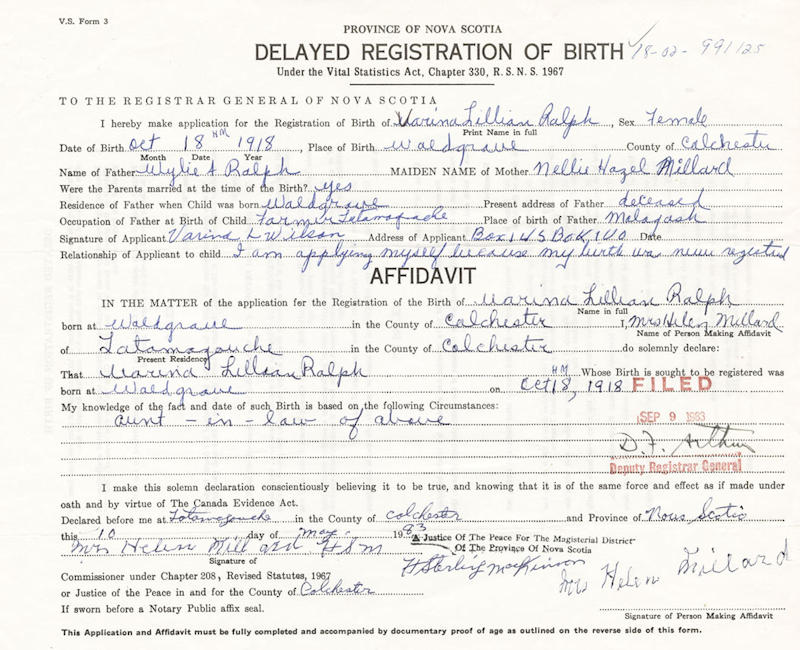 V.S. Form 3
PROVINCE OF NOVA SCOTIA
DELAYED REGISTRATION OF BIRTH 18-02-991125
Under the Vital Statistics Act, Chapter 330, R.S.N.S. 1967
TO THE REGISTRAR GENERAL OF NOVA SCOTIA
I hereby make application for the Registration of Birth of Varina Lillian Ralph, Sex Female
Print Name in full
Date of Birth Oct 18 HM 1918, Place of Birth Waldgrave County of Colchester
Month Date Year
Name of Father Wylie A Ralph MAIDEN NAME of Mother Nellie Hazel Millard
Were the Parents married at the time of the Birth? yes
Residence of Father when Child was born Waldgrave Present address of Father deceased
Occupation of Father at Birth of Child Farmer Tatamagouche Place of birth of Father Malagash
Signature of Applicant Varina L Wilson Address of Applicant Box 145 BOK 1U0 Date
Relationship of Applicant to child I am applying myself because my birth was never registred
AFFIDAVIT
IN THE MATTER of the application for the Registration of the Birth of Varina Lillian Ralph
Name in full
born at Waldgrave in the County of Colchester I, Mrs Helen Millard
Name of Person Making Affidavit
of Tatamagouche in the County of Colchester do solemnly declare:
Present Residence
That Varina Lillian Ralph Whose Birth is sought to be registered was
born at Waldgrave on Oct 18, HM 1918 FILED
My knowledge of the fact and date of such Birth is based on the following Circumstances:
aunt-in-law of above
SEP 9 1983
D.F. Arthur
Deputy Registrar General
I make this solemn declaration conscientiously believing it to be true, and knowing that it is of the same force and effect as if made under
oath and by virtue of The Canada Evidence Act.
Declared before me at Tatamagouche in the County of Colchester and Province of Nova Scotia
this 10 day of May 1983
A Justice Of The Peace For The Magisterial District
Of The Province Of Nova Scotia
Mrs Helen Millard HSM
Signature of
H Sterling MacKinnon
Mrs Helen Millard
Commissioner under Chapter 208, Revised Statutes, 1967
or Justice of the Peace in and for the County of Colchester
If sworn before a Notary Public affix seal.
Signature of Person Making Affidavit
This Application and Affidavit must be fully completed and accompanied by documentary proof of age as outlined on the reverse side of this form.